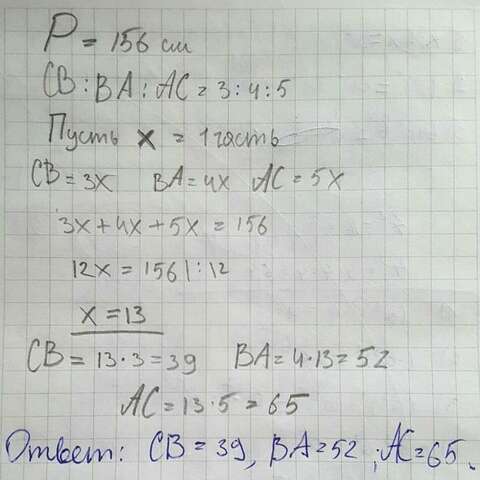 P = 156 см
CB : BA : AC = 3 : 4 : 5
Пусть x = 1 часть
CB = 3x BA = 4x AC = 5x
3x + 4x + 5x = 156
12x = 156 | : 12
x = 13
CB = 13 · 3 = 39 BA = 4 · 13 = 52
AC = 13 · 5 = 65
Ответ: CB = 39, BA = 52 ; AC = 65.